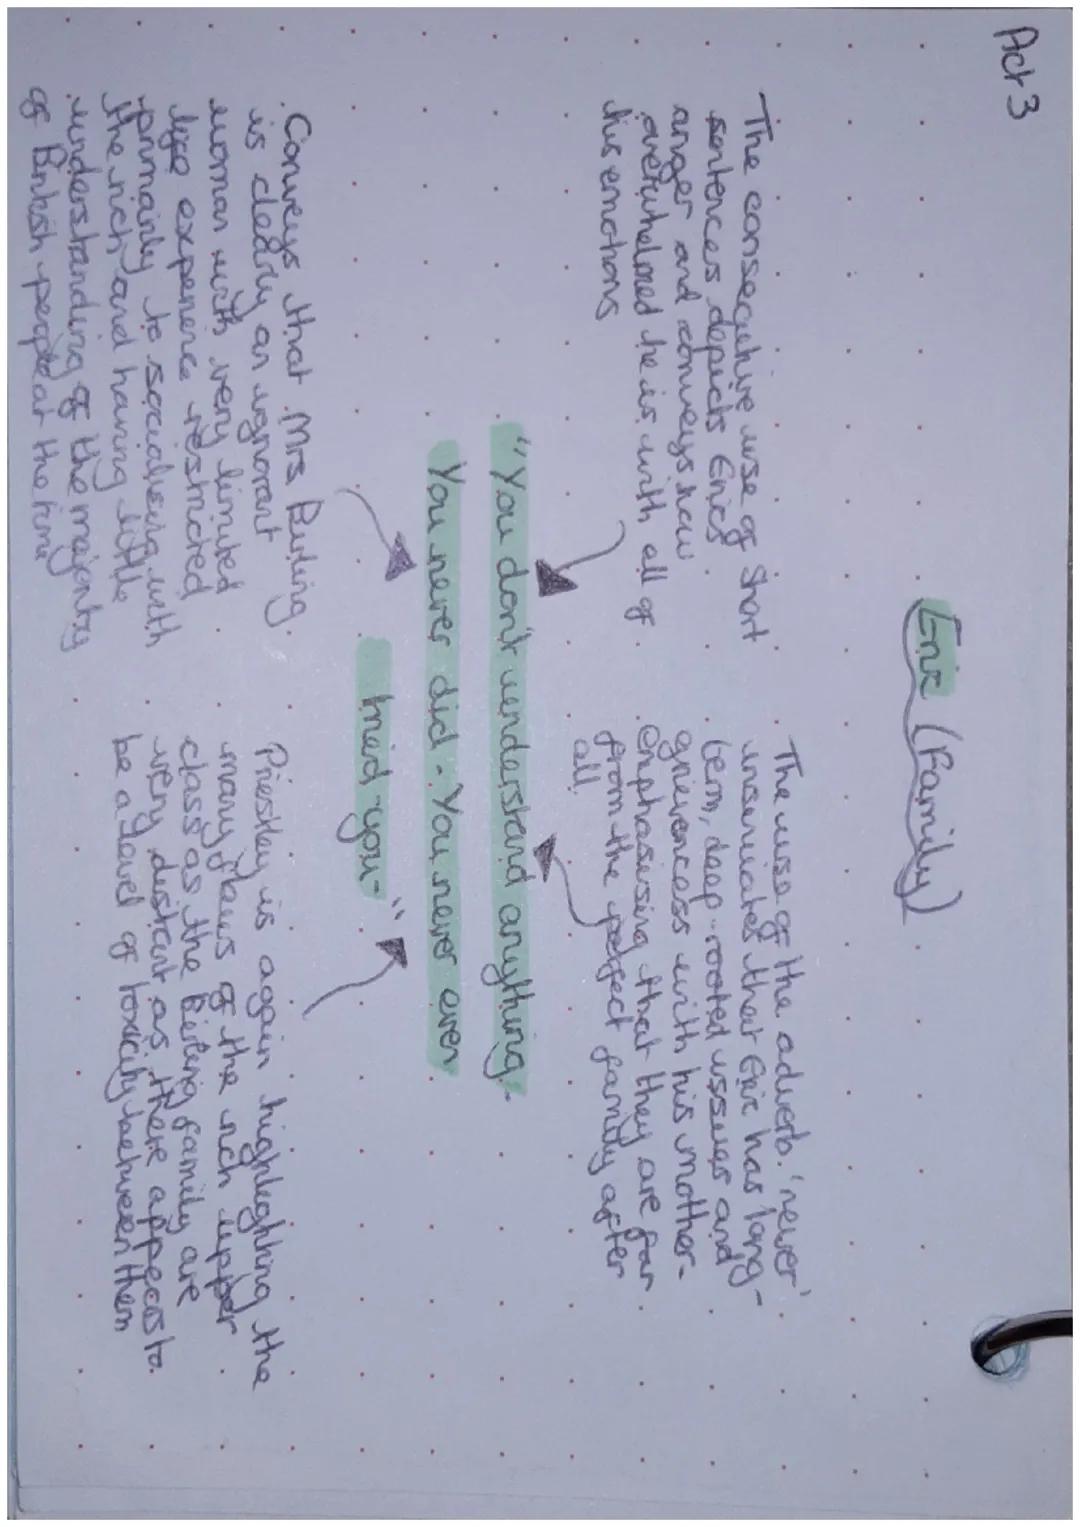 Act 3
Eric (family)
The consecutive use of short
sentences depicts Erics
anger and conveys how
overwhelmed he is with all of
his emotions
The use of the adverb 'never'
insinuates that Eric has long-
term, deep-rooted issues and
grievences with his mother-
emphasising that they are far
from the perfect family after
all.
"You don't understand anything-
You never did - You never even
tried-you-"
Conveys that Mrs Birling
is clearly an ignorant
woman with very limited
life experience restricted
primarily to socialising with
the rich and having little
understanding of the majority
of British people at the time
Priestley is again highlighting the
many flaws of the rich upper
class as the Birling family are
very distant as there appears to
be a level of toxicity between them